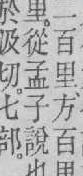 一百里方百里
里。從孟子說也
於
汲切。七部。